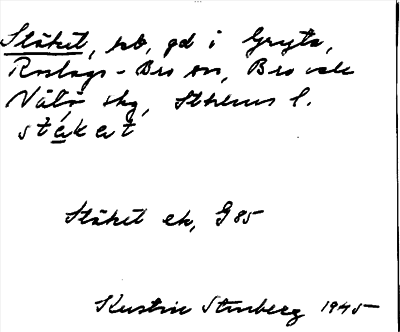 Stäket, sb, gd i Gryta,
Roslags-Bro sn, Bro och
Vätö skg, Sthlms l.
stäkət
Stäket ek, G 85
Kerstin Stenberg 1945